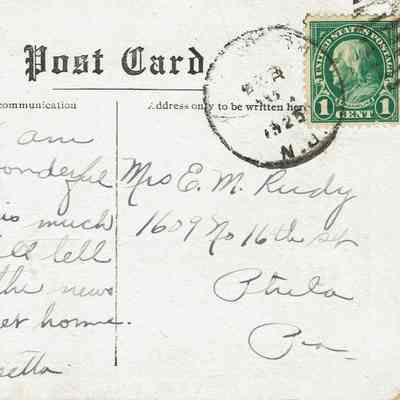 Post Card.
communication
Address only to be written here
UNITED STATES POSTAGE
1 CENT 1
1925
N.J.
am
wonderful
is much
I'll tell
the news
home.
Mrs E. M. Rudy
1609 No 16th st
Phila
Pa-